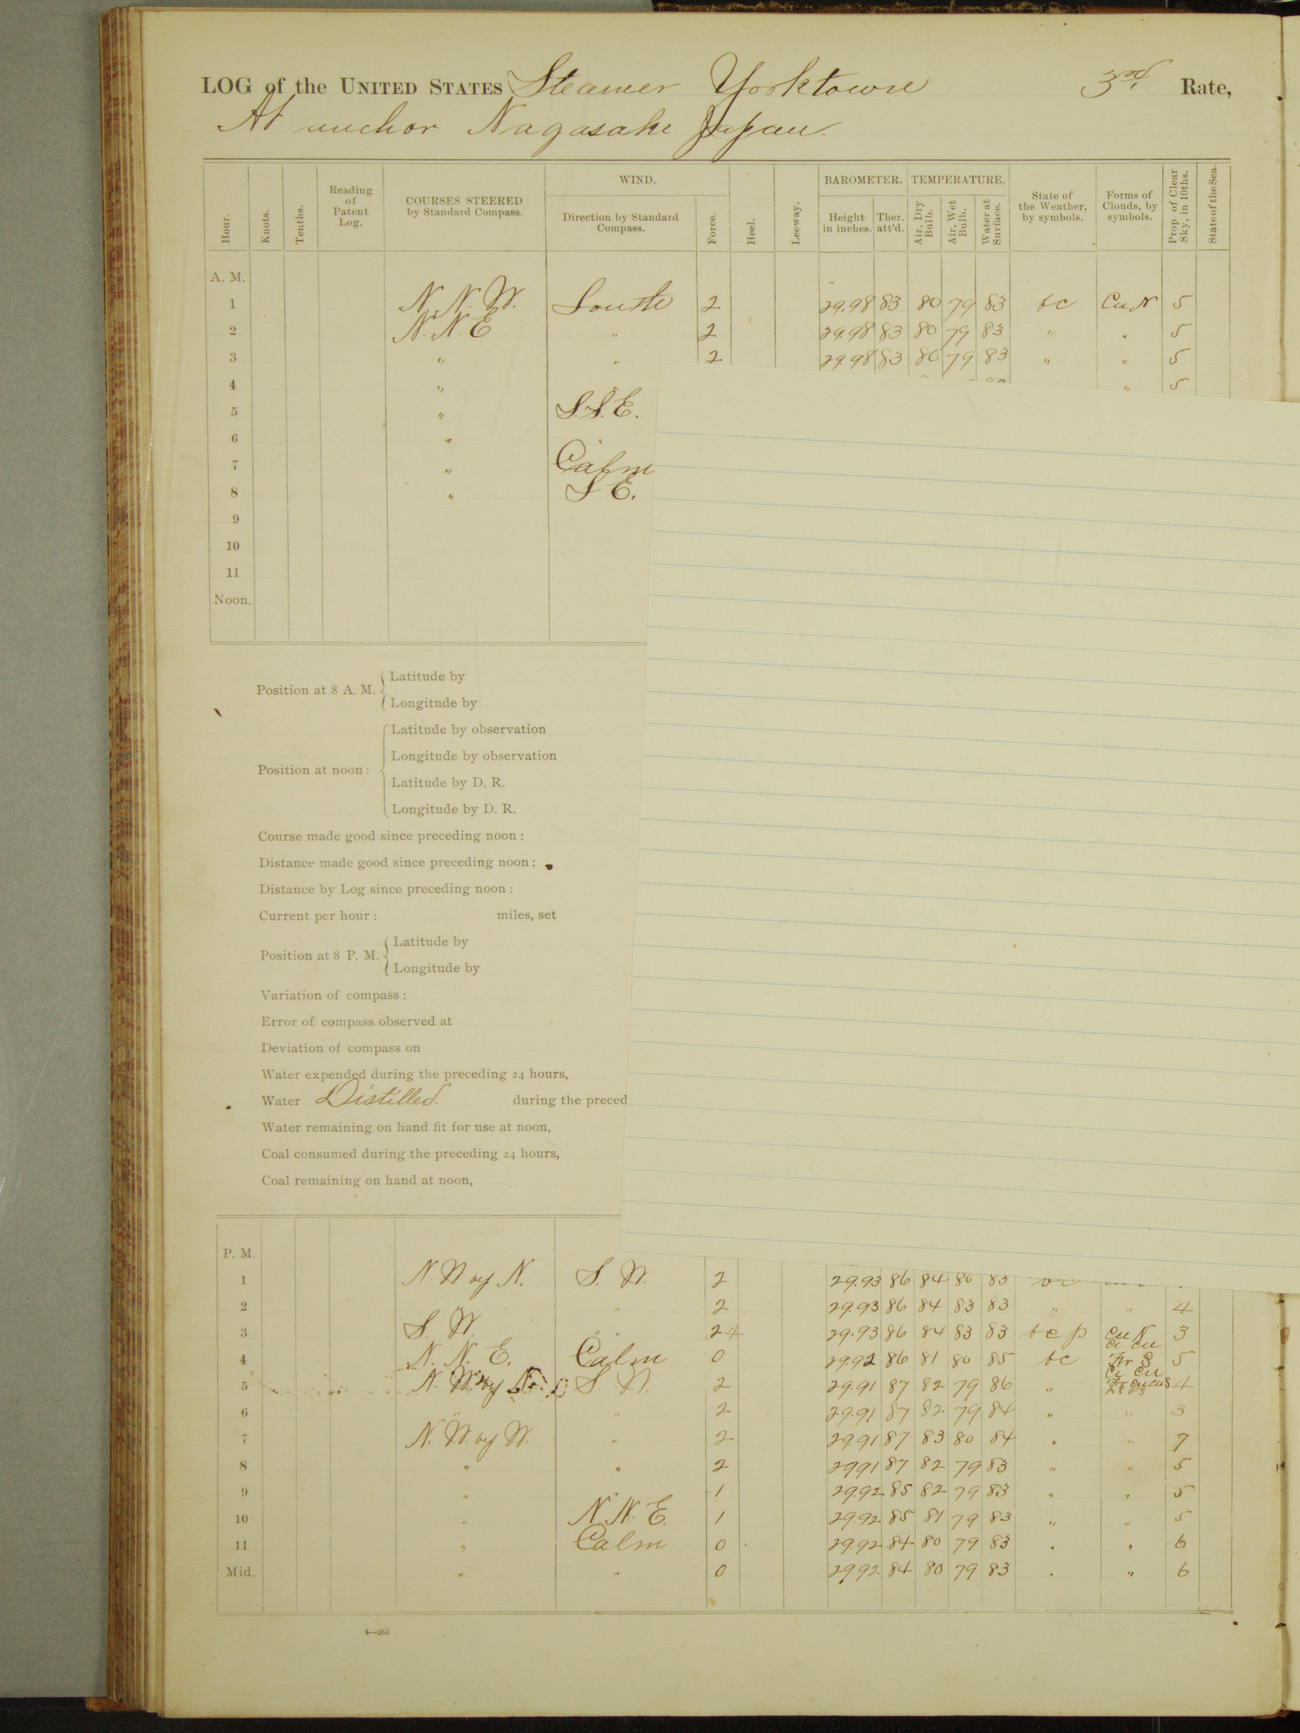 LOG of the UNITED STATES Steamer Yorktown 3rd Rate,
At anchor Nagasaki Japan.
Hour. Knots. Tenths. Reading of Patent Log. COURSES STEERED by Standard Compass. WIND. Direction by Standard Compass. Force. Heel. Leeway. BAROMETER. Height in inches. Ther. att'd. TEMPERATURE. Air, Dry Bulb. Air, Wet Bulb. Water at Surface. State of the Weather, by symbols. Forms of Clouds, by symbols. Prop. of Clear Sky, in 10ths. State of the Sea.
A. M.
1 N.N.W. South 2 29.98 83 80 79 83 bc CuN 5
2 N.N.E " 2 29.98 83 80 79 83 " " 5
3 " " 2 29.98 83 80 79 83 " " 5
4 " " 5
5 " S.S.E.
6 "
7 " Calm
8 " S E.
9
10
11
Noon.
Position at 8 A. M. Latitude by
Longitude by
Position at noon: Latitude by observation
Longitude by observation
Latitude by D. R.
Longitude by D. R.
Course made good since preceding noon:
Distance made good since preceding noon:
Distance by Log since preceding noon:
Current per hour: miles, set
Position at 8 P. M. Latitude by
Longitude by
Variation of compass:
Error of compass observed at
Deviation of compass on
Water expended during the preceding 24 hours,
Water Distilled. during the preced
Water remaining on hand fit for use at noon,
Coal consumed during the preceding 24 hours,
Coal remaining on hand at noon,
P. M.
1 N W by N. S. W. 2 29.93 86 84 80 83 bc
2 " 2 29.93 86 84 83 83 " " 4
3 S. W. " 24 29.93 86 84 83 83 bcp CuN 3
4 N. N. E. Calm 0 29.92 86 81 80 85 bc 5
5 N. W. by S. W. 2 29.91 87 82 79 86 " 4
6 " " 2 29.91 87 82 79 84 " " 3
7 N. W. by W. " 2 29.91 87 83 80 84 " " 7
8 " " 2 29.91 87 82 79 83 " " 5
9 " " 1 29.92 85 82 79 83 " " 5
10 " N.N.E. 1 29.92 85 81 79 83 " " 5
11 " Calm 0 29.92 84 80 79 83 " " 6
Mid. " " 0 29.92 84 80 79 83 " " 6
4—265